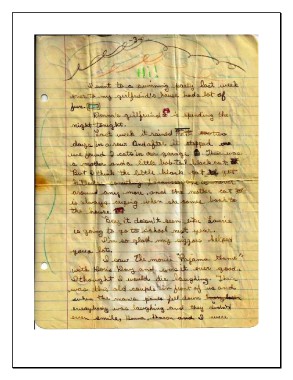 -3-
I went to a swimming party last week
over to my girlfriend's house had a lot of
fun.
Donna's girlfriend is spending the
night tonight.
Last week it rained for two
days in a row. And after it stopped
we found 2 cats in our garage. There was
a mother and a little bob-tail black cat.
But I think the little black cat
around any more, and the mother cat
is always crying when she comes back to
the house.
Gee, it doesn't seem like Laurie
is going to go to school next year.
I'm so glad my letters helped
you a lot.
I saw the movie "Pajama
with Doris Day, and it was ever good.
I thought I would die laughing. It
was this old couple in front of us and
when the man's pants fell down
everybody was laughing and they didn't
even smile, Donna, Sharon and I were